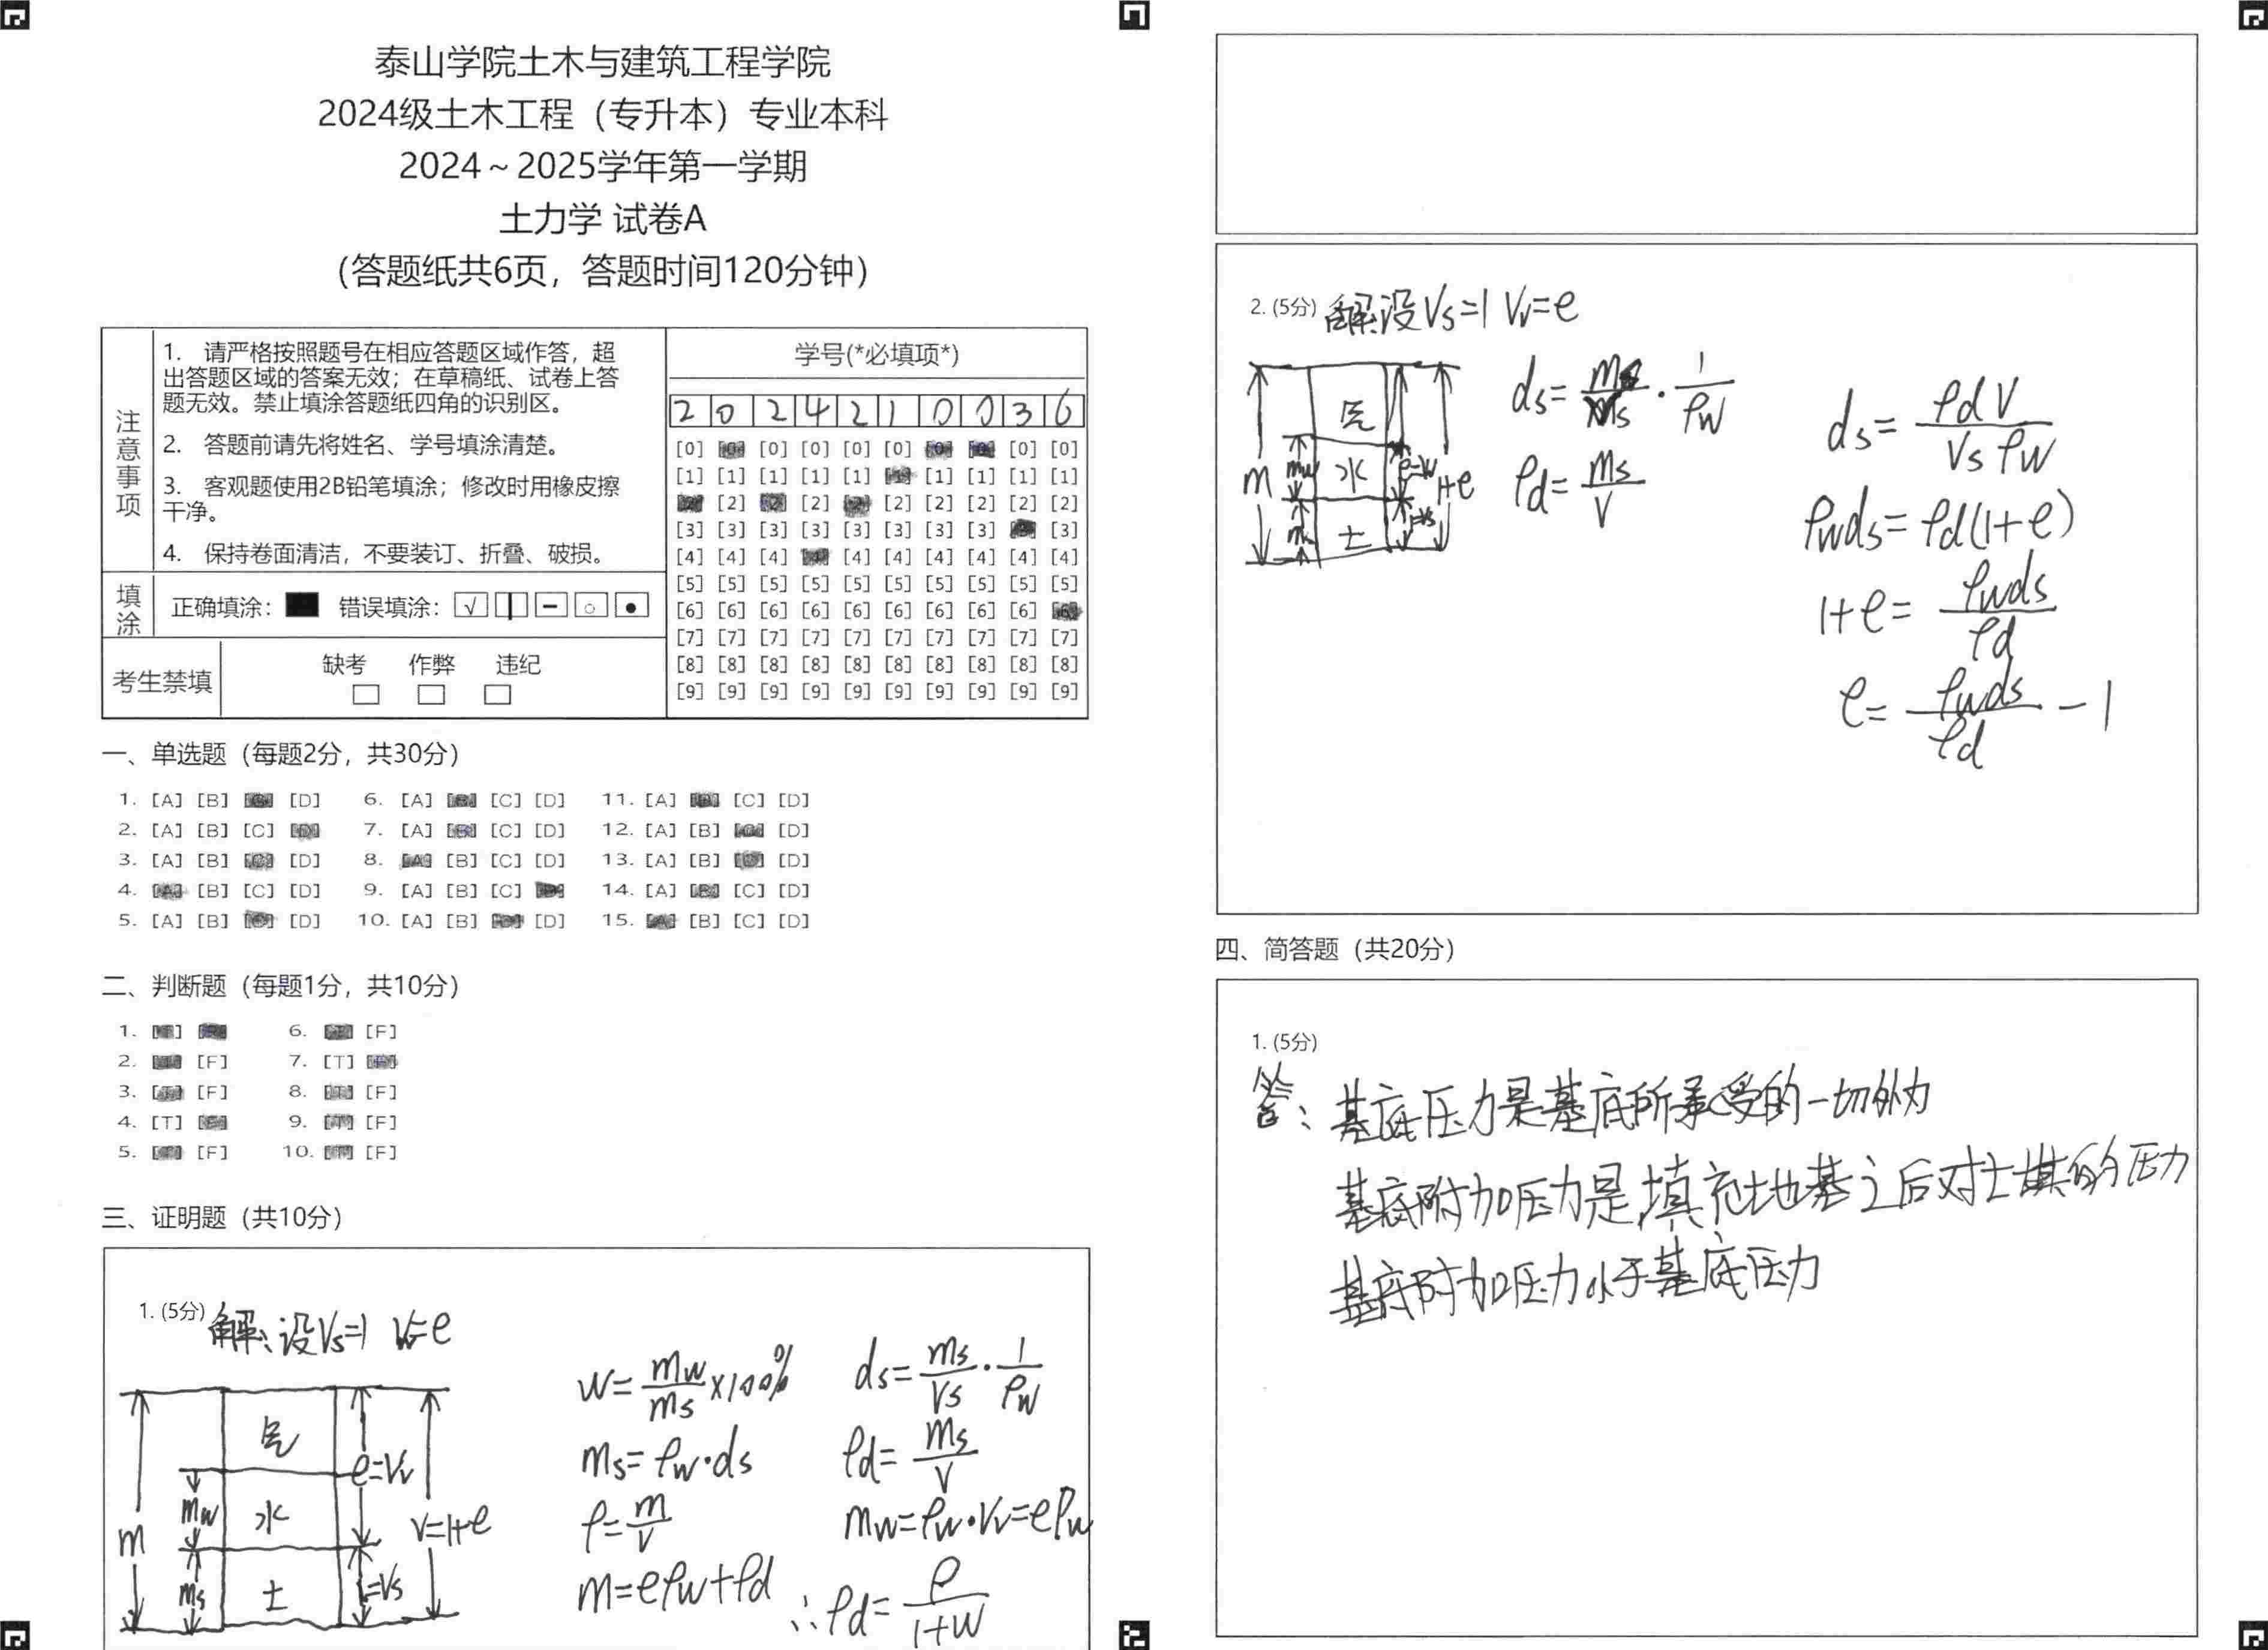 泰山学院土木与建筑工程学院
2024级土木工程（专升本）专业本科
2024～2025学年第一学期
土力学 试卷A
（答题纸共6页，答题时间120分钟）
注意事项
1. 请严格按照题号在相应答题区域作答，超
出答题区域的答案无效；在草稿纸、试卷上答
题无效。禁止填涂答题纸四角的识别区。
2. 答题前请先将姓名、学号填涂清楚。
3. 客观题使用2B铅笔填涂；修改时用橡皮擦
干净。
4. 保持卷面清洁，不要装订、折叠、破损。
填涂
正确填涂： 错误填涂： √
考生禁填
缺考 作弊 违纪
学号(*必填项*)
2 0 2 4 2 1 0 0 3 6
[0] [0] [0] [0] [0] [0] [0] [0]
[1] [1] [1] [1] [1] [1] [1] [1] [1]
[2] [2] [2] [2] [2] [2] [2]
[3] [3] [3] [3] [3] [3] [3] [3] [3]
[4] [4] [4] [4] [4] [4] [4] [4] [4]
[5] [5] [5] [5] [5] [5] [5] [5] [5] [5]
[6] [6] [6] [6] [6] [6] [6] [6] [6]
[7] [7] [7] [7] [7] [7] [7] [7] [7] [7]
[8] [8] [8] [8] [8] [8] [8] [8] [8] [8]
[9] [9] [9] [9] [9] [9] [9] [9] [9] [9]
一、单选题（每题2分，共30分）
1. [A] [B] [D] 6. [A] [C] [D] 11. [A] [C] [D]
2. [A] [B] [C] 7. [A] [C] [D] 12. [A] [B] [D]
3. [A] [B] [D] 8. [B] [C] [D] 13. [A] [B] [D]
4. [B] [C] [D] 9. [A] [B] [C] 14. [A] [C] [D]
5. [A] [B] [D] 10. [A] [B] [D] 15. [B] [C] [D]
二、判断题（每题1分，共10分）
1. 6. [F]
2. [F] 7. [T]
3. [F] 8. [F]
4. [T] 9. [F]
5. [F] 10. [F]
三、证明题（共10分）
1. (5分) 解：设Vs=1 Vv=e
气
水
土
m
mw
ms
e=Vv
1=Vs
V=1+e
w=mw/ms×100%
ms=ρw·ds
ρ=m/V
m=eρw+ρd
ds=ms/Vs·1/ρw
ρd=ms/V
mw=ρw·Vv=eρw
∴ρd=ρ/(1+w)
2. (5分) 解：设Vs=1 Vv=e
气
水
土
m
mw
1+e
ds= · 1/ρw
ρd=ms/V
ds=ρdV/(Vsρw)
ρwds=ρd(1+e)
1+e=ρwds/ρd
e=ρwds/ρd-1
四、简答题（共20分）
1. (5分)
答：基底压力是基底所承受的一切外力
基底附加压力是填充地基之后对土的压力
基底附加压力小于基底压力